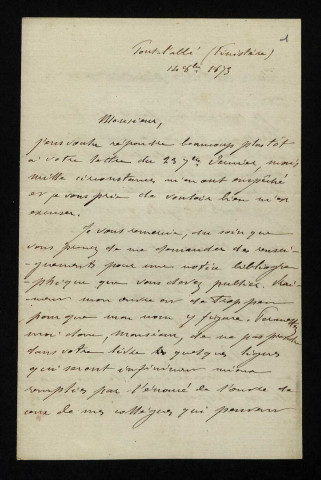 1
Pont-l'abbé (Finistère)
14 8bre 1873
Monsieur,
J'ai voulu répondre beaucoup plustôt
à votre lettre du 23 7bre dernier, mais
mille circonstances m'en ont empêché
et je vous prie de vouloir bien m'en
excuser.
Je vous remercie, du soin que
vous prenez de me demander des rensei-
gnements pour une notice bibliogra-
phique que vous devez publier.
mon œuvre est de trop peu
pour que mon nom y figure. Permettez
moi donc, Monsieur, de ne pas prendre
dans votre livre les quelques lignes
qui seront infiniment mieux
remplies par l'énoncé de l'œuvre de
ceux de mes collègues qui peuvent